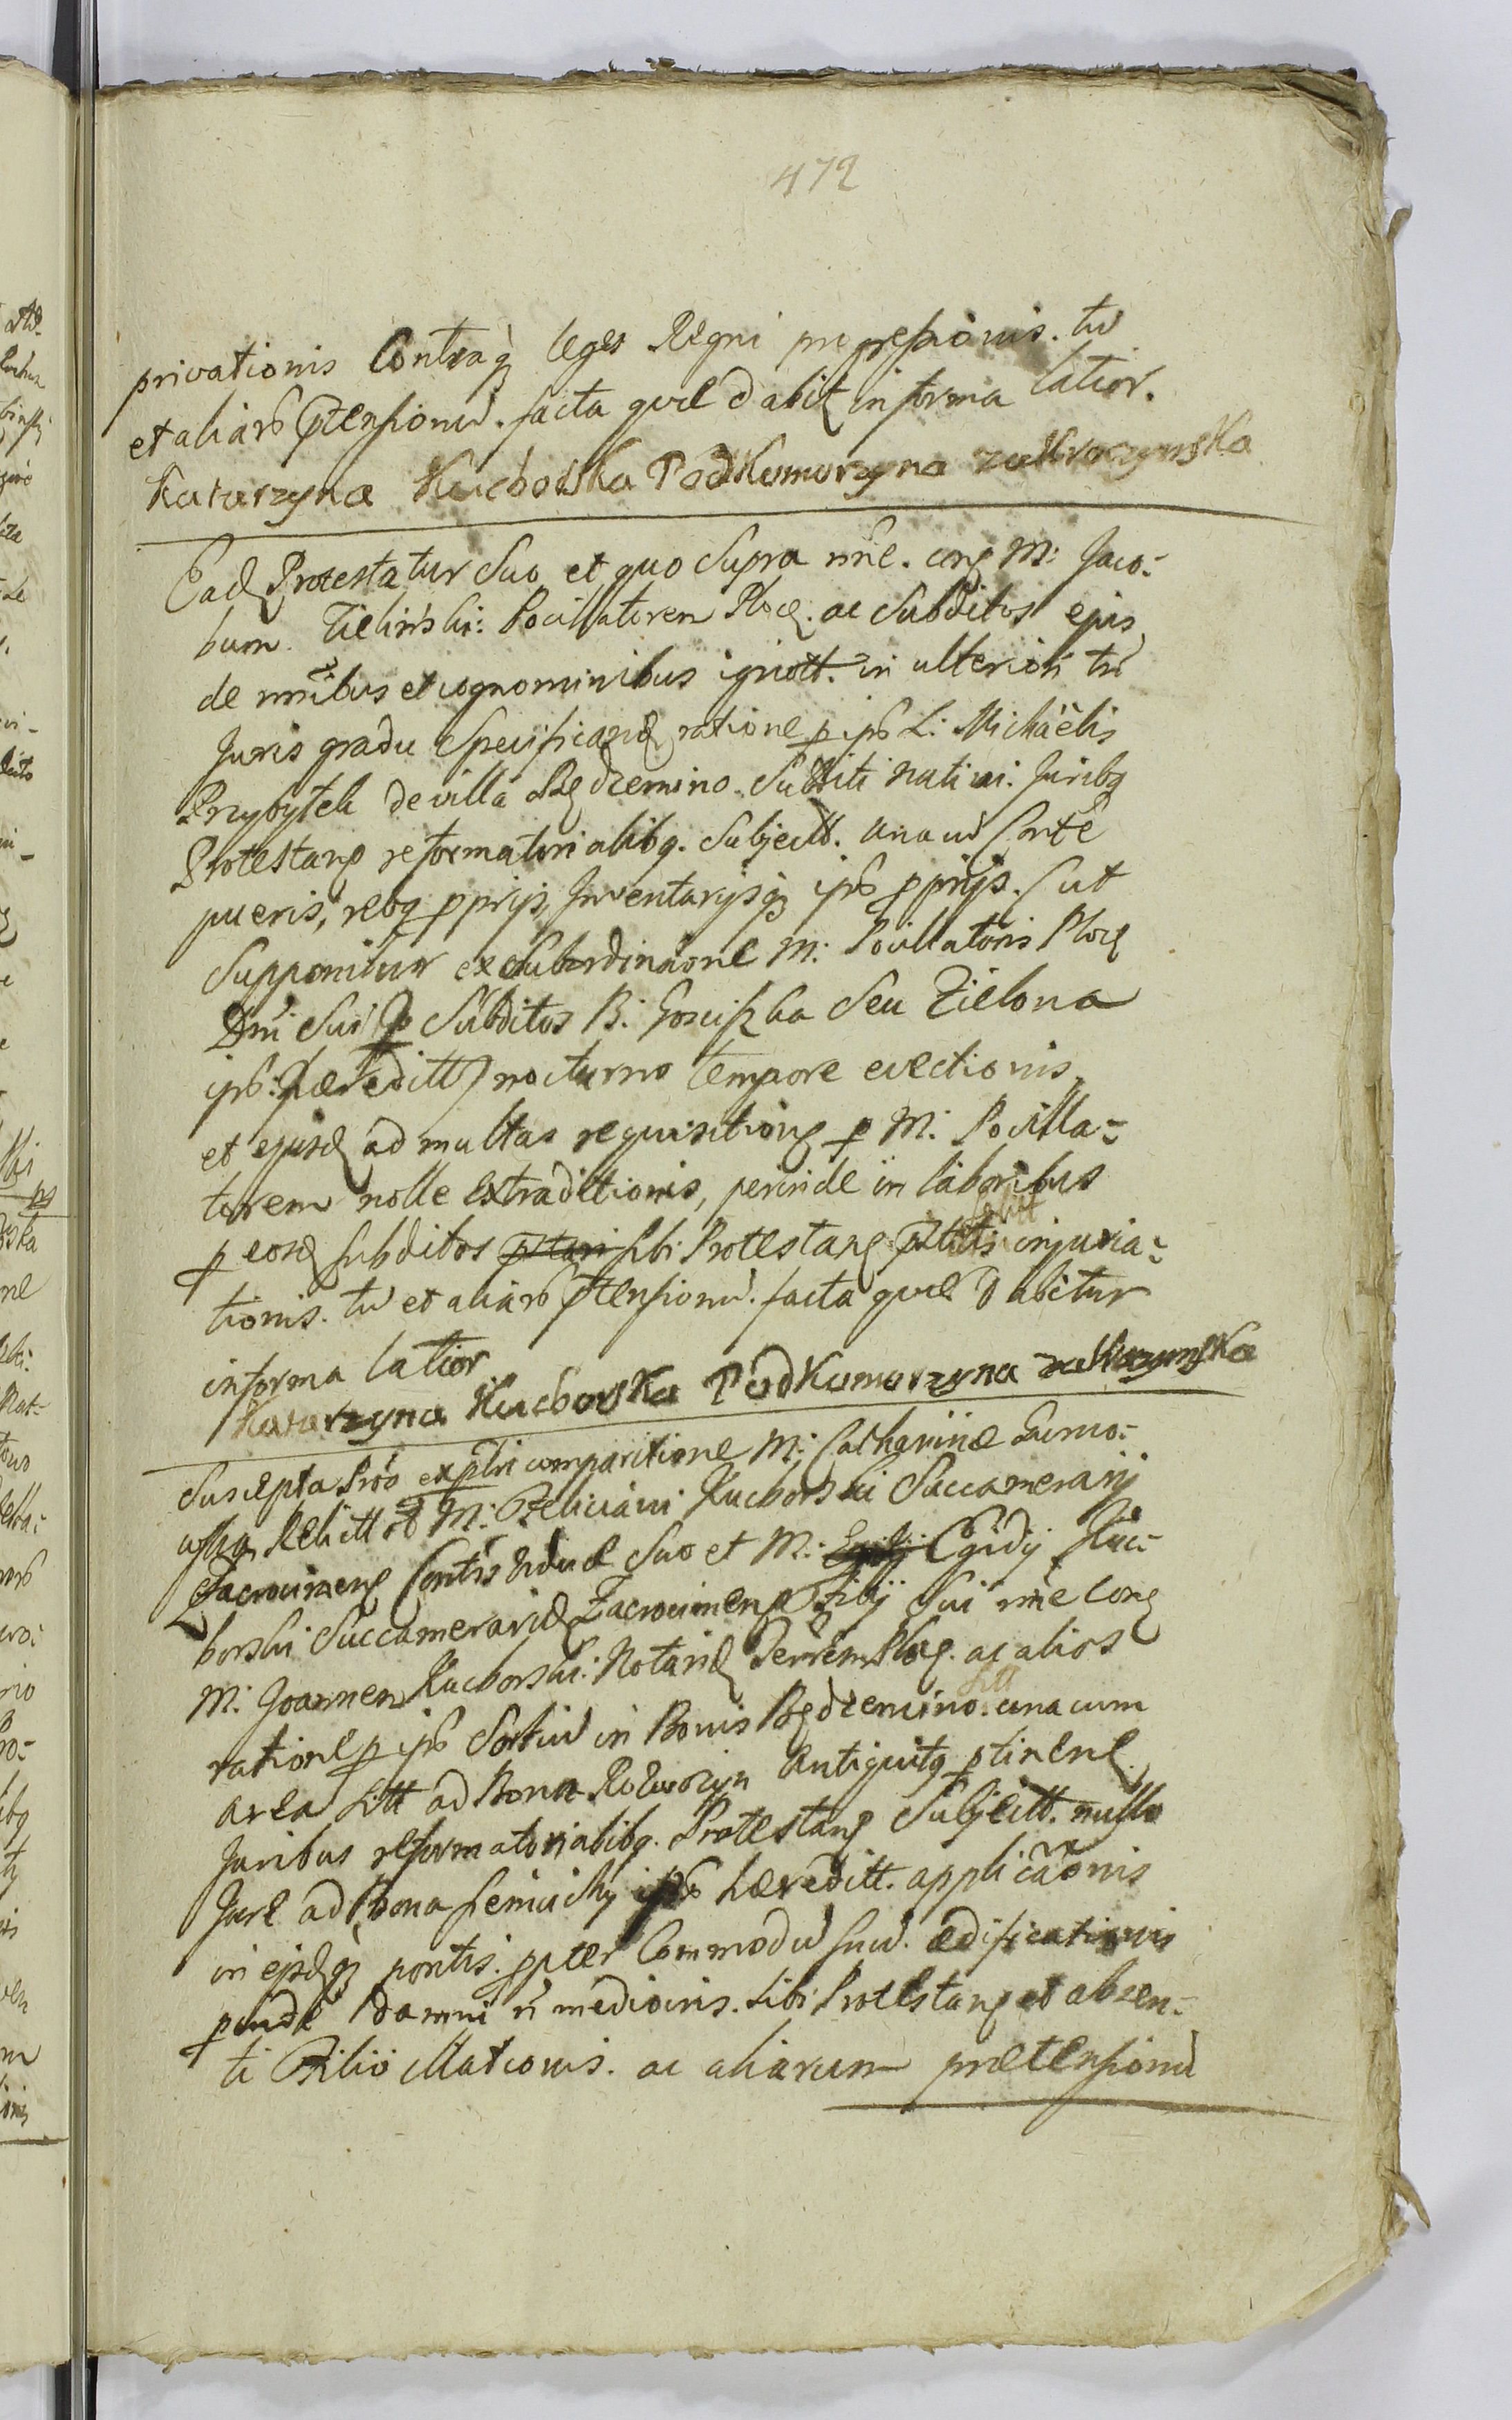 472
privationis Contraq leges Regni progressionis. tũ
et aliarũ ptensionũ. facta quæ dabit in forma latior.
Katarzyna Kuchorska Podkomorzyna zakroczymska
Ead Protestatur Suo et quo Supra nñe. cong M: Jaco-
bum Zielinski: Pocillatorem Ploc. ac Subditos ejus
de nñibus et cognominibus ignott. in ulteriori tñ
Juris gradu Specificand ratione p ips L: Michäelis
Przybytek de villa Będzemino. Subditi nativi. Juribq
Protestans reformatorialibq. Subjectt. una cũ Conte
pueris, rebq pprijs, Inventarijsq ips pprijs. (ut
Supponitur ex Subordinaone M: Pocillatoris Ploc
Dni Sui p Subditos B: Goscisska Seu Zielona
ips: hæreditt) nocturno tempore evectionis,
et ejusd ad multas requisitions p M: Pocilla-
torem nolle Extraditionis, perinde in laboribus
p eosd subditos sibi Protestang injuria-
tionis. tũ et aliarũ ptensionũ. facta quæ dabitur
in forma latior
Katarzyna Kuchorska Podkomorzyna zakroczymska
Suscepta Prõ ex pltri comparitione M: Catharinæ
Relictt M: Feliciani Kuchorski Succamerarij
Zacrocimens Contis viduæ Suo et M: Egidij Kuc-
horski Succamerarid Zacrocimens Filij Sui nñe cong
M: Joannem Kuchorski: Notariũ Terrem Ploc. ac alios
ratione p ips Sortiũ in Bonis Będzemino. Sitt una cum
area Sitt ad Bona antiquitq ptinene
Juribus reformatorialibq. Protestang Subjectt. nullo
Jure ad Bona Sieniuchy ips hæreditt. applicãonis
in ejsdq pontis. ppter Commodũ suũ. ædificationis
pinde damni ñ mediocris. Sibi Protestang et absen-
ti Filio illationis. ac aliarum prætensionũ